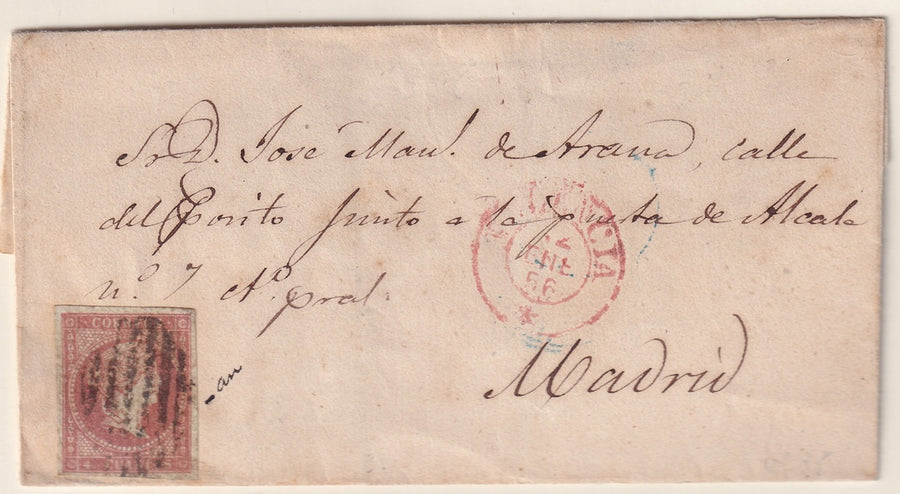 Sr. D. José Manl. de Arana, calle
del Posito Junto a la puerta de Alcala
n.º 7 ct.º pral.
Madrid
12
ENE
56